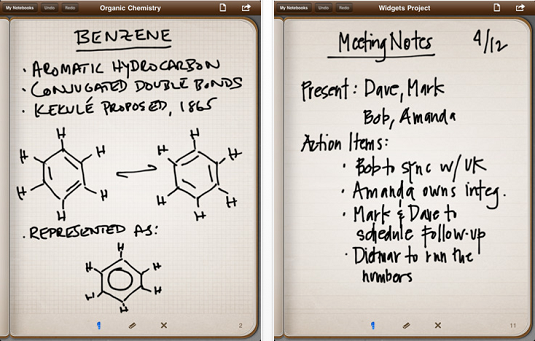 My Notebooks Undo Redo Organic Chemistry
BENZENE
· AROMATIC HYDROCARBON
· CONJUGATED DOUBLE BONDS
· KEKULÉ PROPOSED, 1865
H
H H
H H
H
H
H H
H H
H
· REPRESENTED AS:
H
H H
H H
H
2
My Notebooks Undo Redo Widgets Project
Meeting Notes 4/12
Present: Dave, Mark
Bob, Amanda
Action Items:
· Bob to sync w/ UK
· Amanda owns integ.
· Mark & Dave to
schedule follow-up
· Dietmar to run the
numbers
11